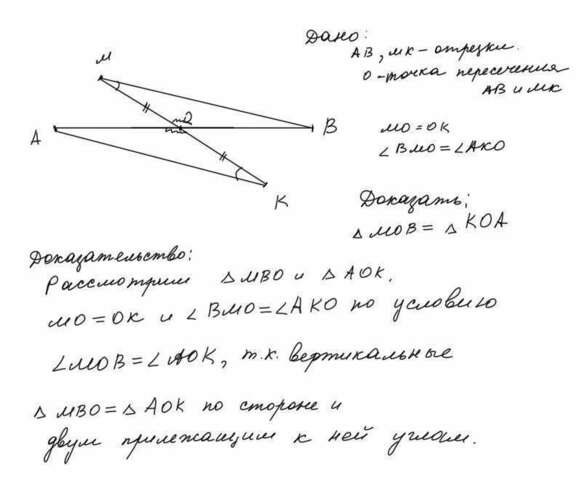 Дано:
AB, МК - отрезки.
О - точка пересечения
AB и МК
МО = ОК
∠ВМО = ∠АКО
Доказать:
△ МОВ = △ КОА
М
А
В
К
Доказательство:
Рассмотрим △МВО и △АОК.
МО = ОК и ∠ВМО = ∠АКО по условию
∠МОВ = ∠АОК, т.к. вертикальные
△ МВО = △ АОК по стороне и
двум прилежащим к ней углам.